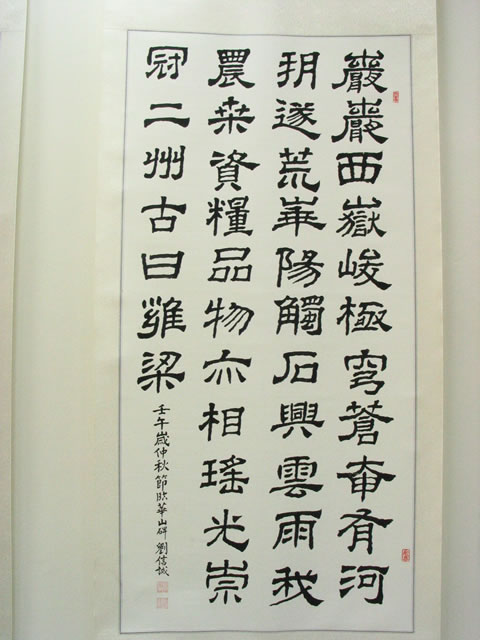 巖巖西嶽峻極穹蒼奄有河
朔遂荒華陽觸石興雲雨我
農桒資糧品物亦相瑤光崇
冠二州古曰雍梁
壬午歲仲秋節临華山碑 劉信誠